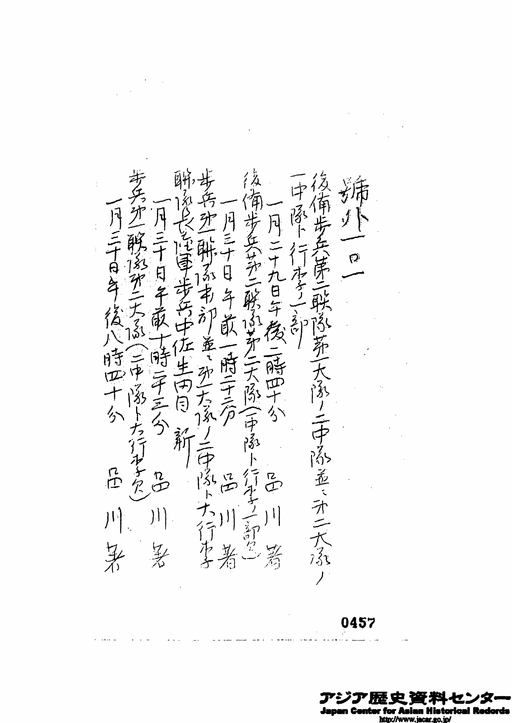 號外一ロー
後備歩兵第二聯隊第一大隊ノ二中隊並ニ第二大隊ノ
一中隊ト行李ノ一部
一月二十九日午後二時四十分 品川著
後備歩兵第二聯隊第二大隊(一中隊ト行李ノ一部欠)
一月三十日午前一時二十二分 品川著
歩兵第一聯隊本部並ニ第一大隊ノ二中隊ト大行李
聯隊長陸軍歩兵中佐生田目 新
一月三十日午前十時二十三分 品川著
歩兵第一聯隊第二大隊(二中隊ト大行李欠)
一月三十日午後八時四十分 品川著
0457
アジア歴史資料センター
Japan Center for Asian Historical Records
http://www.jacar.go.jp/